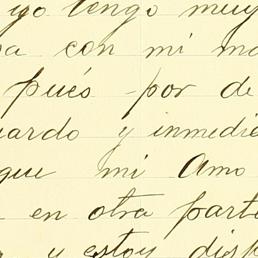 yo tengo muy
a con mi ma
pués por de
uardo y inmedia
que mi Amo
en otra parte
y estoy disp